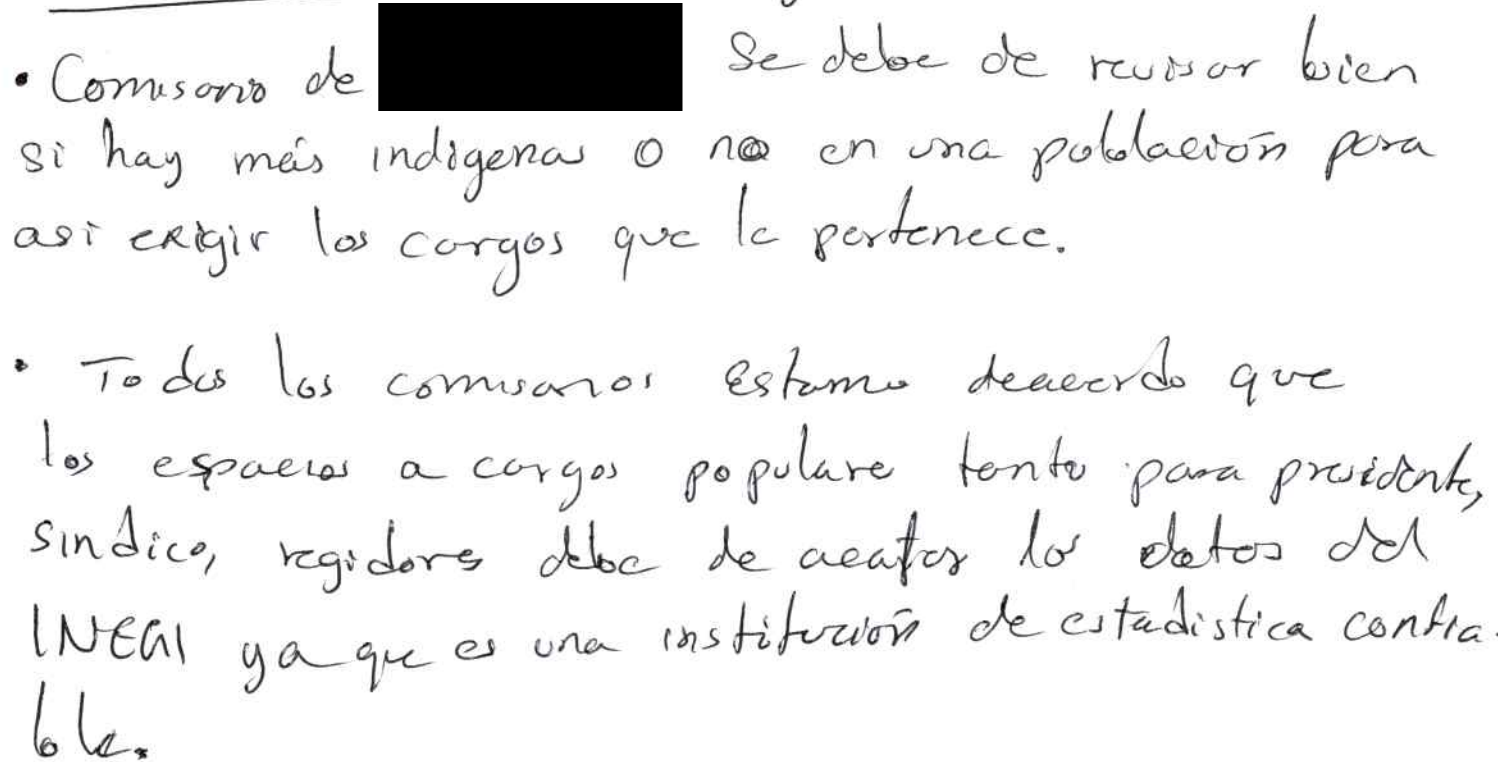 • Comisario de Se debe de revisar bien
si hay más indigenas o no en una población para
asi exigir los cargos que le pertenece.
• Todos los comisarios estamo deacerdo que
los espacios a cargos populare tanto para presidente,
sindico, regidores debe de acatar los datos del
INEGI ya que es una institución de estadistica confia-
ble.